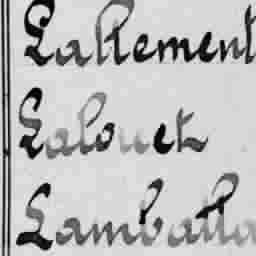 Lallement
Lalouet
Lamballa